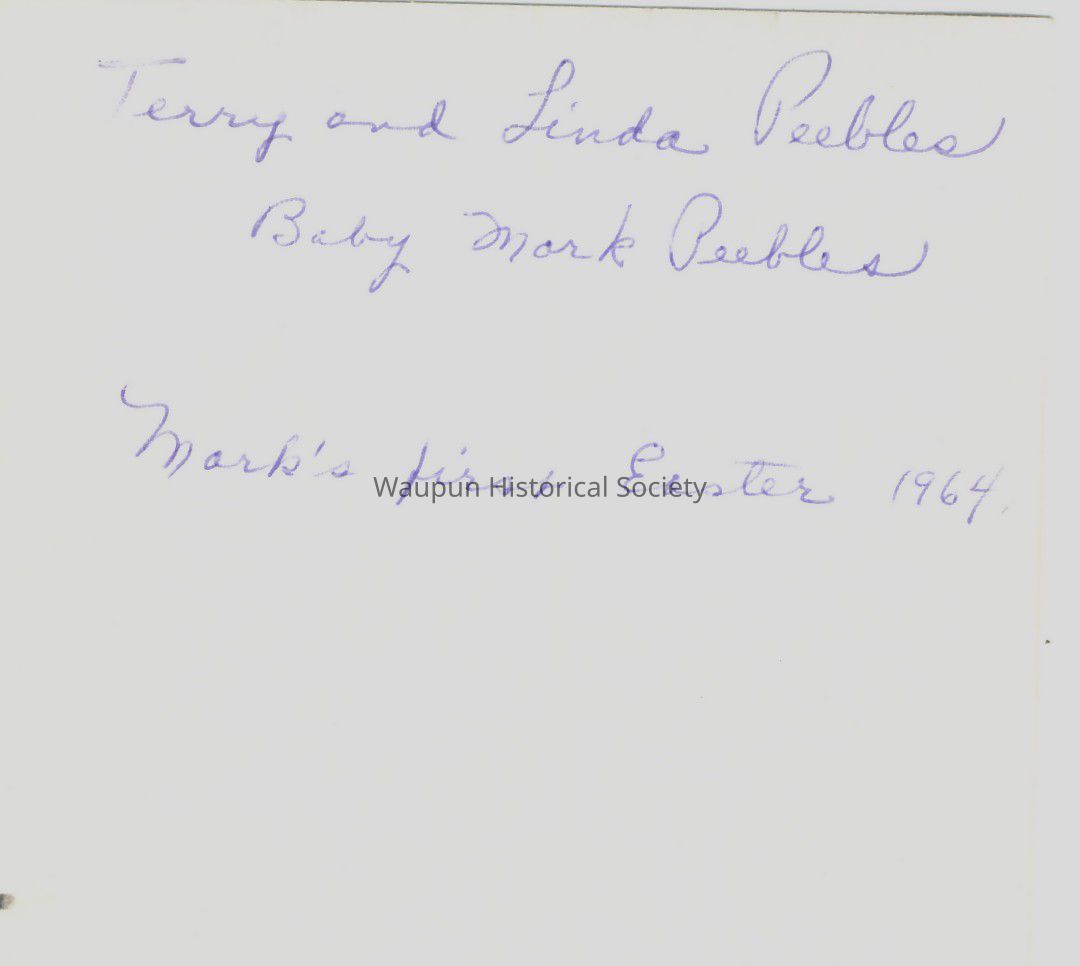 Terry and Linda Peebles
Baby Mark Peebles
Mark's first Easter 1964.
Waupun Historical Society